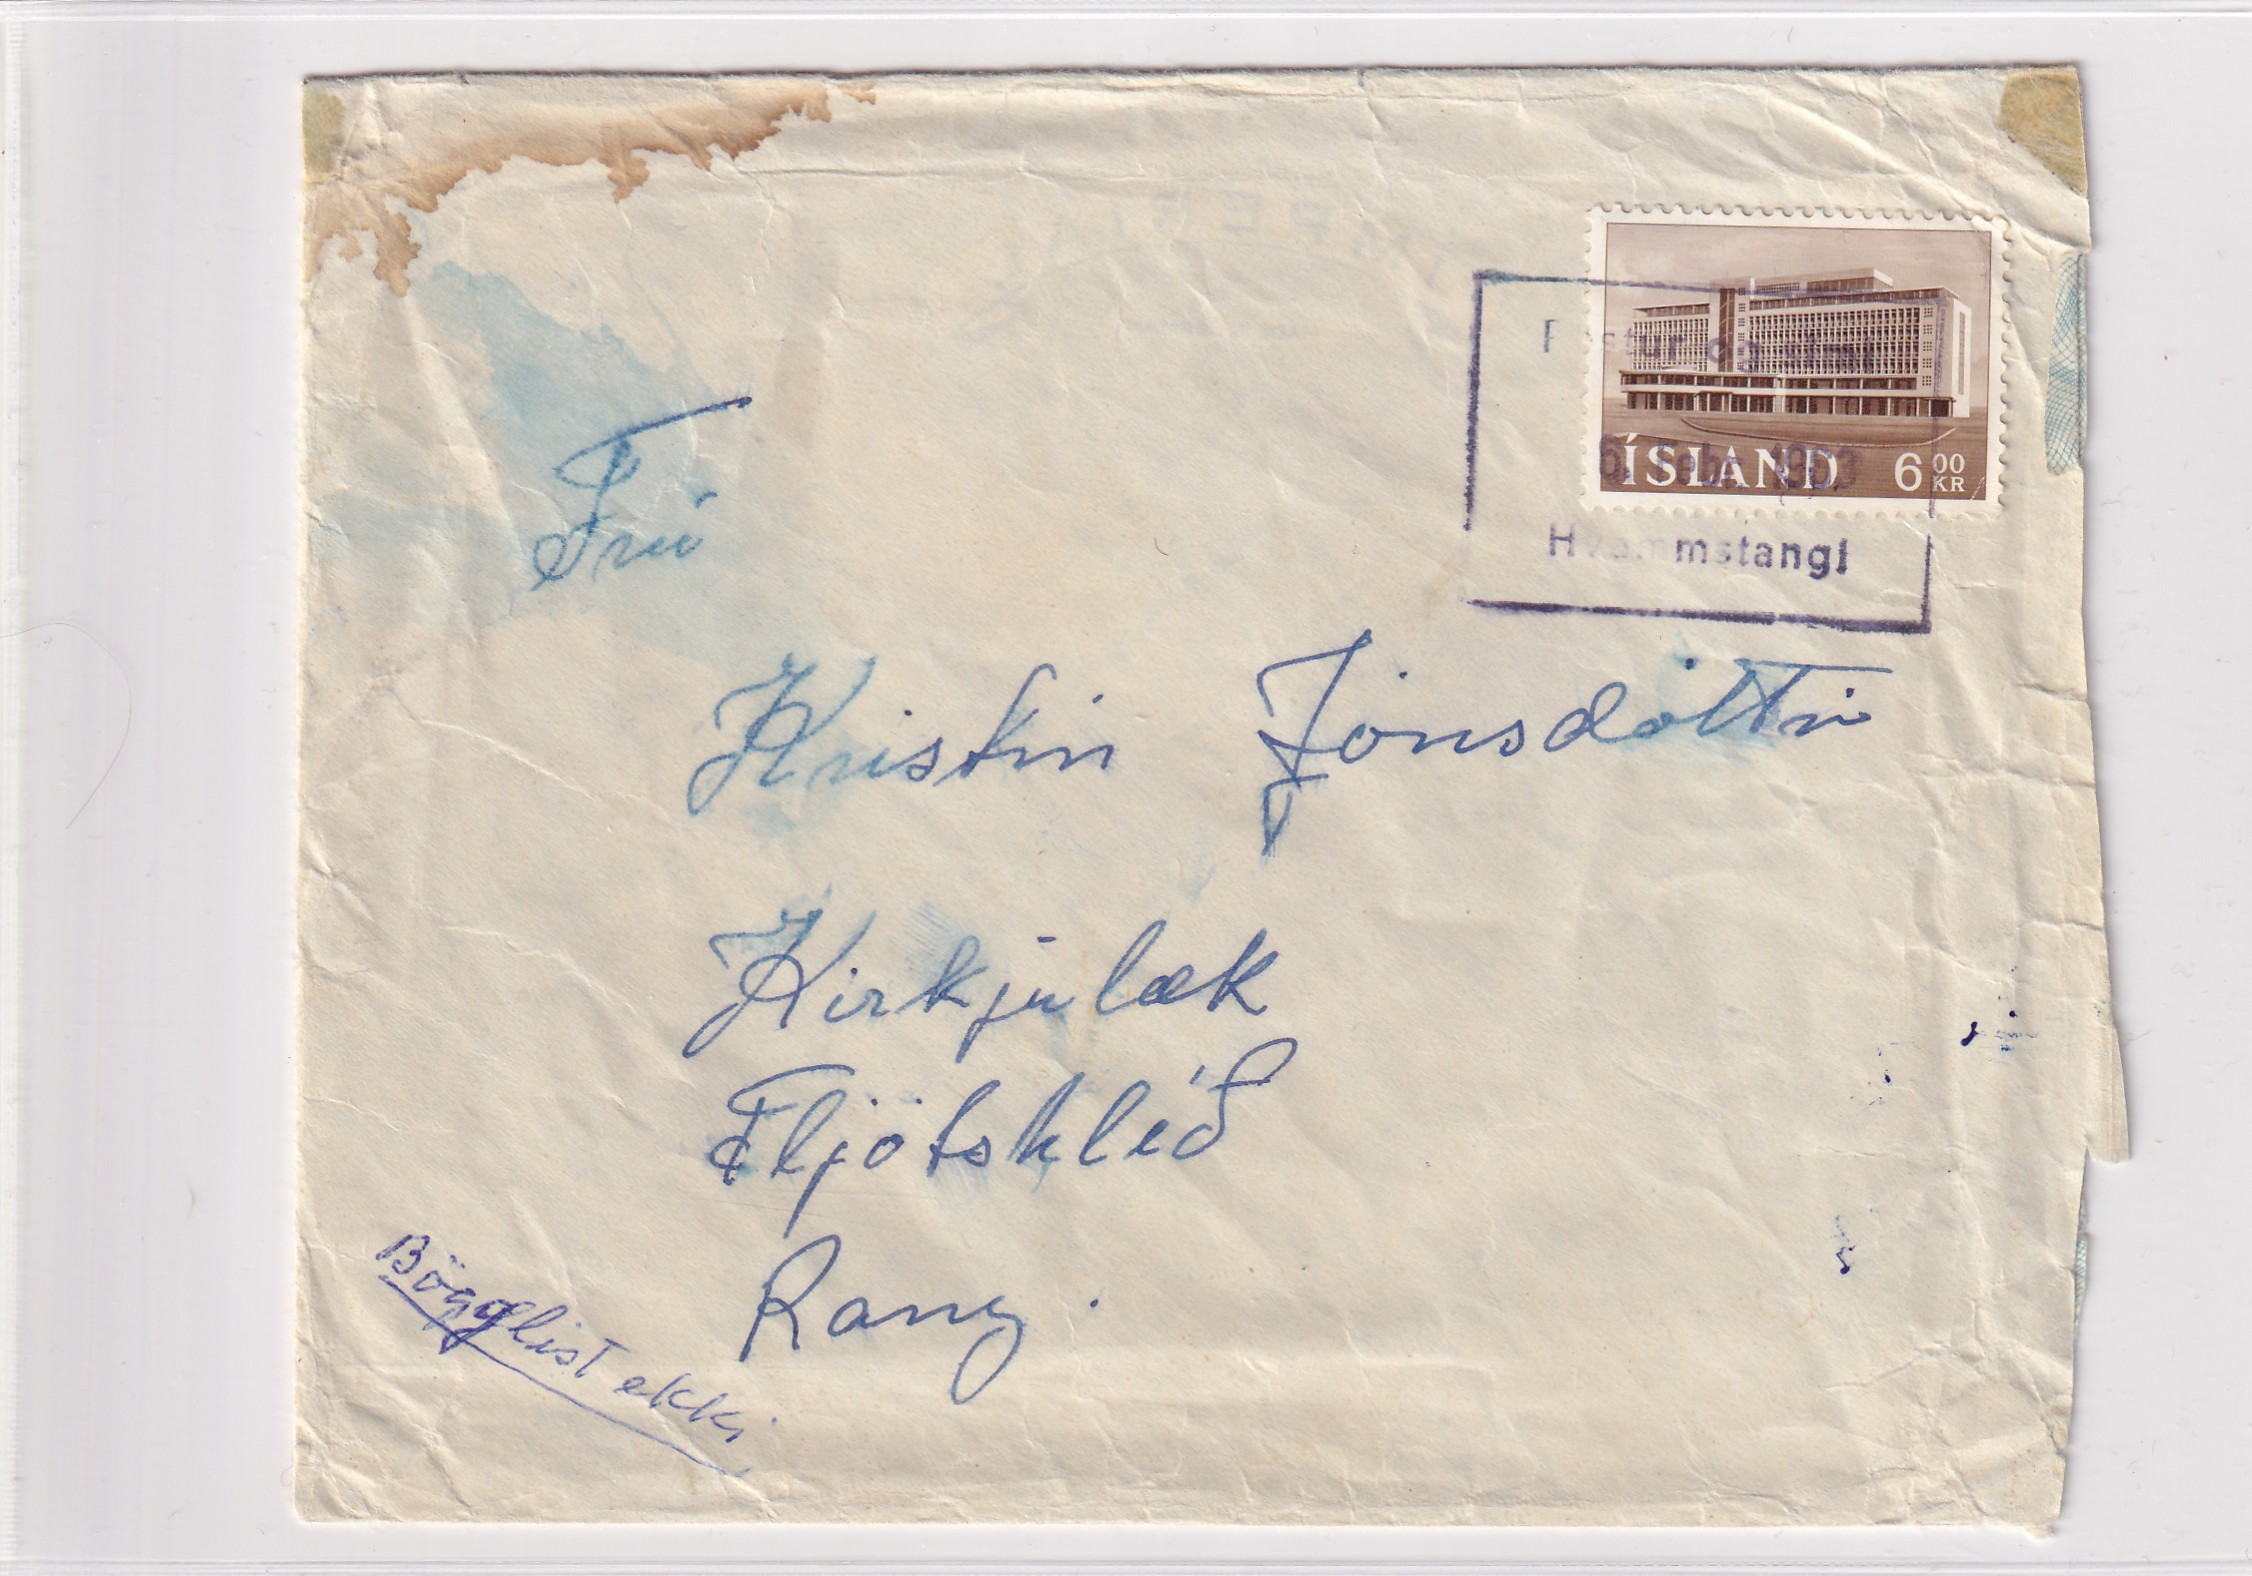 ÍSLAND 6 00 KR
Póstur og sími
6. Febr. 1963
Hvammstangi
Frú
Kristín Jónsdóttir
Kirkjulæk
Fljótshlíð
Rang.
Bögglist ekki